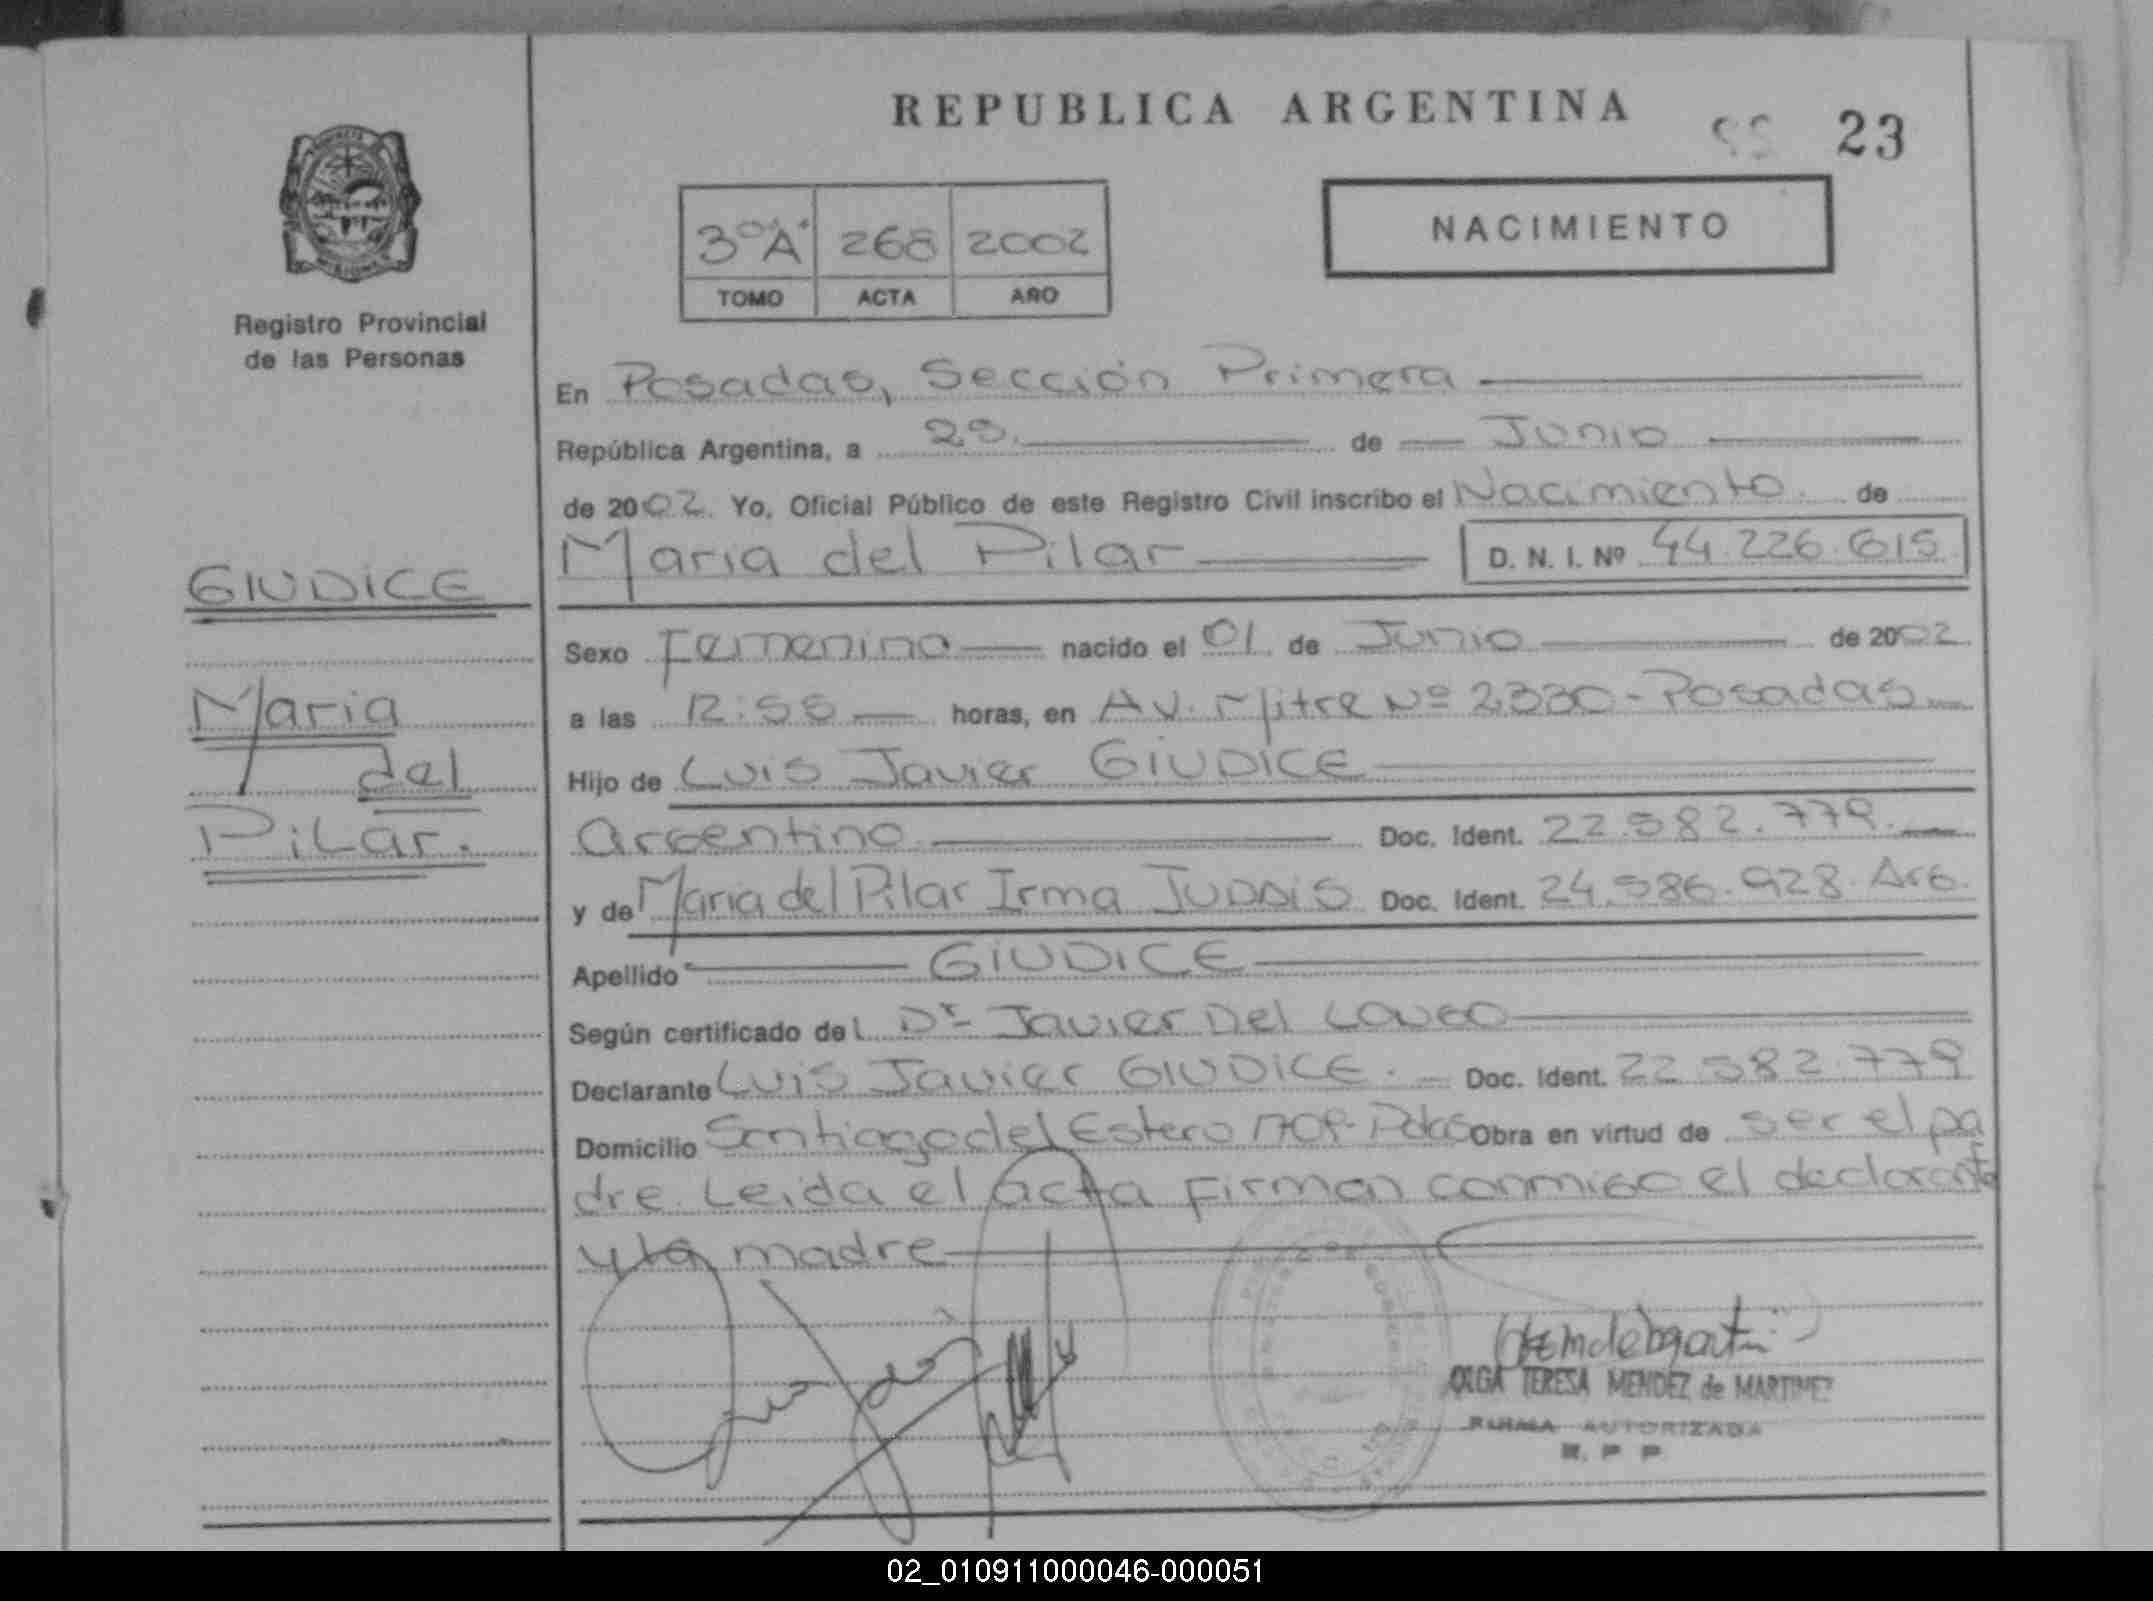 REPUBLICA ARGENTINA
23
3º "A" 268 2002
TOMO ACTA AÑO
NACIMIENTO
Registro Provincial
de las Personas
En Posadas, Sección Primera
República Argentina, a de Junio
de 2002. Yo, Oficial Público de este Registro Civil inscribo el Nacimiento de
Maria del Pilar D. N. I. Nº 44.226.615
GIUDICE
Maria
del
Pilar.
Sexo Femenino nacido el 01 de Junio de 2002
a las horas, en Av. Mitre Nº 2330 - Posadas
Hijo de Luis Javier GIUDICE
Argentino Doc. Ident. 22.582.779.
y de Maria del Pilar Irma Doc. Ident. 24.586.928. Arg.
Apellido GIUDICE
Según certificado del Dr Javier Del
Declarante Luis Javier GIUDICE. Doc. Ident. 22.582.779
Domicilio Santiago del Estero Obra en virtud de ser el pa
dre. Leida el acta firman conmigo el declarante
y la madre
OLGA TERESA MENDEZ de MARTINEZ
FIRMA AUTORIZADA
R. P. P.
02_010911000046-000051